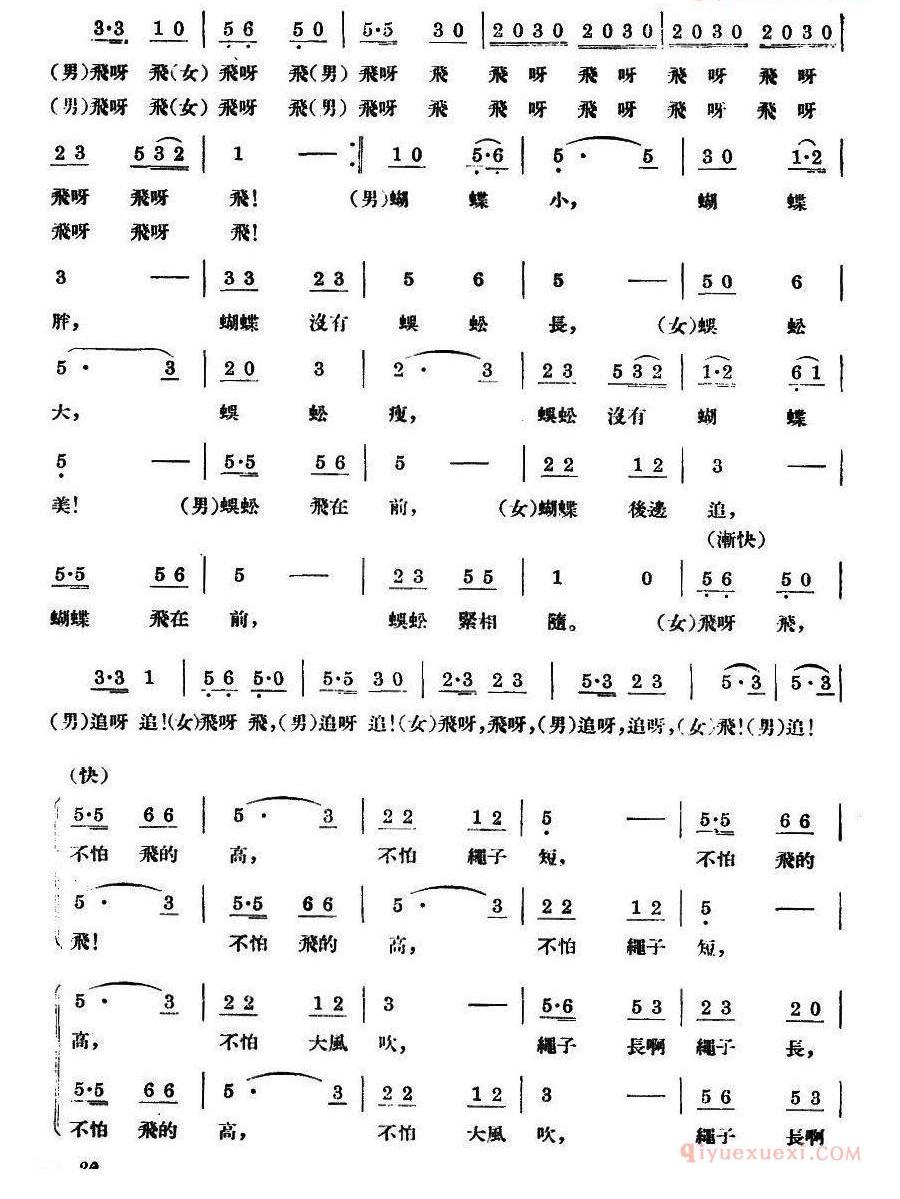 3·3 10 | 56 50 | 5·5 30 | 2030 2030 | 2030 2030 |
(男)飛呀 飛(女)飛呀 飛(男)飛呀 飛 飛呀 飛呀 飛呀 飛呀
(男)飛呀 飛(女)飛呀 飛(男)飛呀 飛 飛呀 飛呀 飛呀 飛呀
23 532 | 1 — :| 10 5·6 | 5· 5 | 30 1·2 |
飛呀 飛呀 飛! (男)蝴 蝶 小, 蝴 蝶
飛呀 飛呀 飛!
3 — | 33 23 | 5 6 | 5 — | 50 6 |
胖, 蝴蝶 沒有 蜈 蚣 長, (女)蜈 蚣
5· 3 | 20 3 | 2· 3 | 23 532 | 1·2 61 |
大, 蜈 蚣 瘦, 蜈蚣 沒有 蝴 蝶
5 — | 5·5 56 | 5 — | 22 12 | 3 — |
美! (男)蜈蚣 飛在 前, (女)蝴蝶 後邊 追,
(漸快)
5·5 56 | 5 — | 23 55 | 1 0 | 56 50 |
蝴蝶 飛在 前, 蜈蚣 緊相 隨。 (女)飛呀 飛,
3·3 1 | 56 5·0 | 5·5 30 | 2·3 23 | 5·3 23 | 5·3 | 5·3 |
(男)追呀 追!(女)飛呀 飛,(男)追呀 追!(女)飛呀,飛呀,(男)追呀,追呀,(女)飛!(男)追!
(快)
5·5 66 | 5· 3 | 22 12 | 5 — | 5·5 66 |
不怕 飛的 高, 不怕 繩子 短, 不怕 飛的
5· 3 | 5·5 66 | 5· 3 | 22 12 | 5 — |
飛! 不怕 飛的 高, 不怕 繩子 短,
5· 3 | 22 12 | 3 — | 5·6 53 | 23 20 |
高, 不怕 大風 吹, 繩子 長啊 繩子 長,
5·5 66 | 5· 3 | 22 12 | 3 — | 56 53 |
不怕 飛的 高, 不怕 大風 吹, 繩子 長啊
qiyuexuexi.com